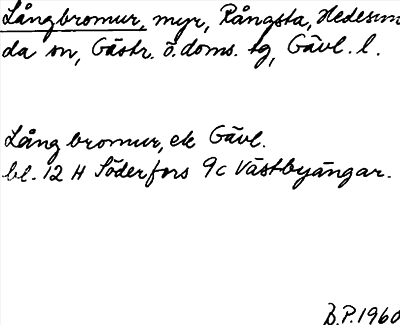 Långbromur, myr, Rångsta, Hedesun
da sn, Gästr. ö. doms. tg, Gävl. l.
Långbromur, ek Gävl.
bl. 12 H Söderfors 9c Västbyängar.
B.P. 1960